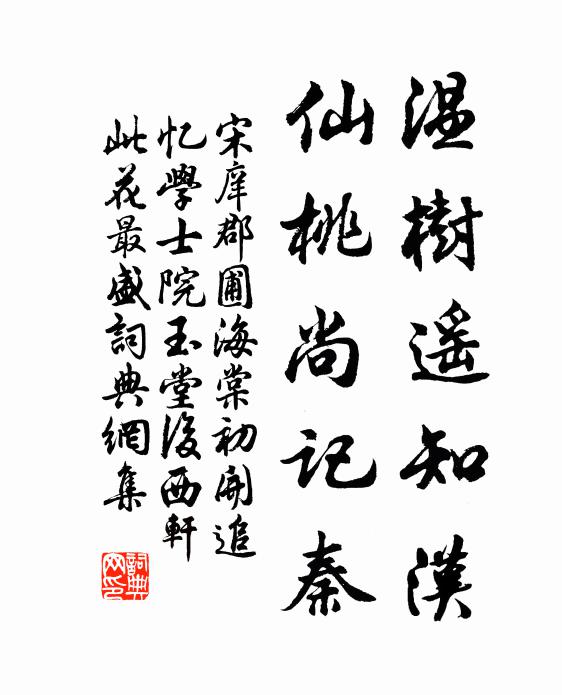 温樹遥知漢
仙桃尚记秦
宋庠郡圃海棠初開追
忆學士院玉堂後西軒
此花最盛詞典網集
詞典
网印